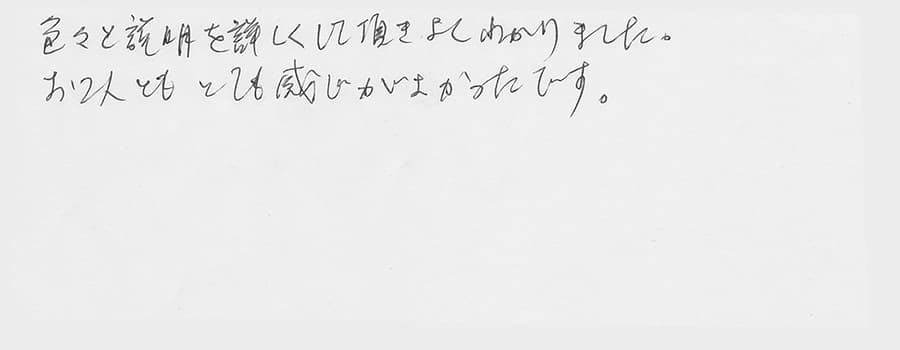 色々と説明を詳しくして頂きよくわかりました。
お2人とも とても感じがよかったです。